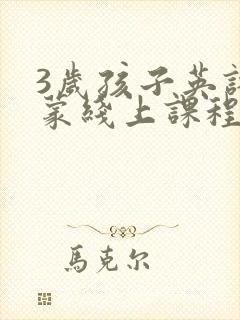 3歲孩子英語
蒙綫上課程
馬克尔